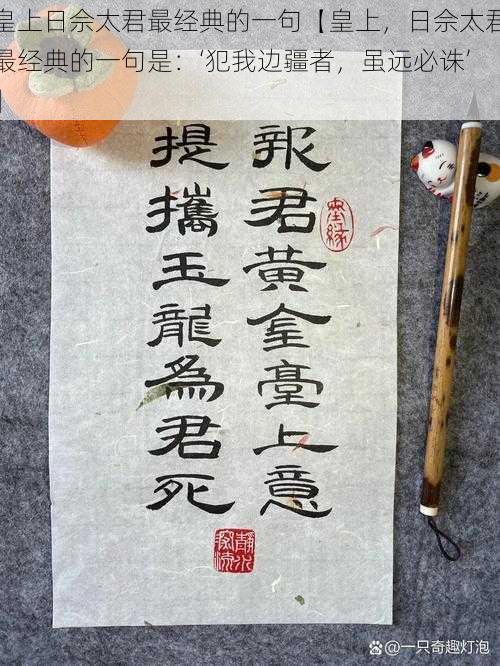 皇上日佘太君最经典的一句【皇上，日佘太君
最经典的一句是：‘犯我边疆者，虽远必诛’
】
報君黃金臺上意
提攜玉龍為君死
墨緣
靜水流深
@一只奇趣灯泡